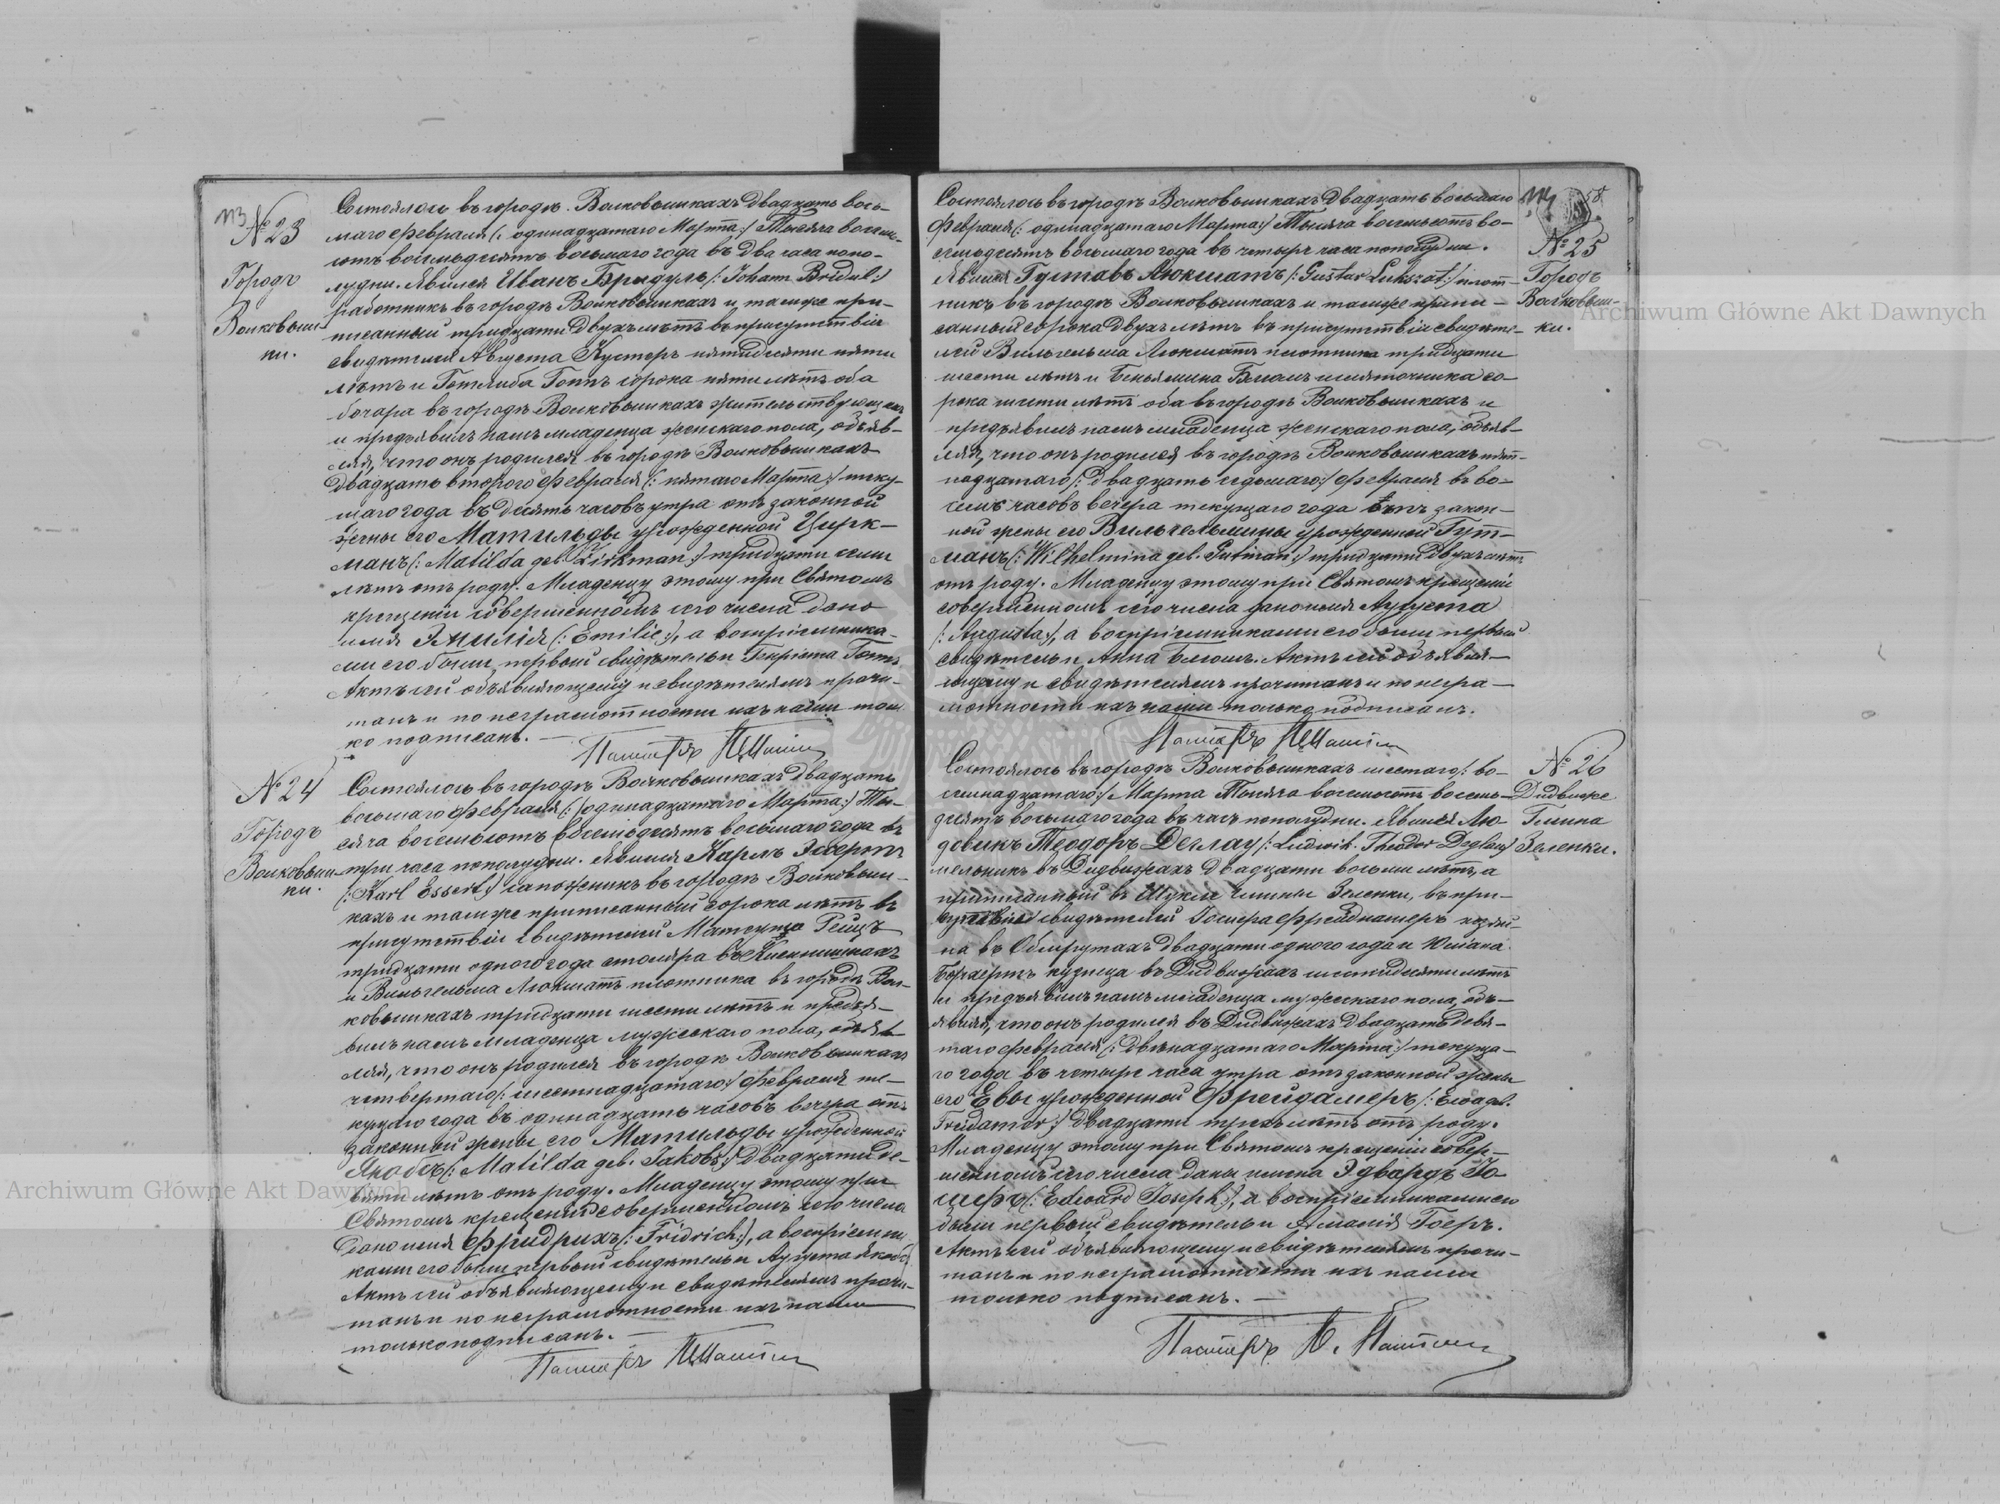 113
№ 23
Городъ
Волковыш-
ки.
Состоялось въ городѣ Волковышкахъ двадцать вось-
маго Февраля (: одинадцатаго Марта:) Тысяча восем-
сотъ восемьдесятъ восьмаго года въ два часа попо-
лудни. Явился Иванъ Бридуль (: Johann Bridul:)
работникъ въ городѣ Волковышкахъ и тамже при-
писанный тридцати двухъ лѣтъ въ присутствіи
свидѣтелей Августа Кустеръ пятидесяти пяти
лѣтъ и Готлиба Гоппъ сорока пяти лѣтъ оба
бочара въ городѣ Волковышкахъ жительствующихъ
и предъявилъ намъ младенца женскаго пола, объяв-
ляя, что онъ родился въ городѣ Волковышкахъ
двадцать втораго Февраля (: пятаго Марта:) теку-
щаго года въ десять часовъ утра отъ законной
жены его Матильды урожденной Цирк-
манъ (: Matilda geb. Zirkman:) тридцати семи
лѣтъ отъ роду. Младенцу этому при Святомъ
крещеніи совершенномъ сего числа дано
имя Эмилія (: Emilie:), а воспріемника-
ми его были первый свидѣтель и Генріета Гоппъ
Актъ сей объявляющему и свидѣтелямъ прочи-
танъ и по неграмотности ихъ нами толь
ко подписанъ. —
Пасторъ
№ 24
Городъ
Волковыш-
ки.
Состоялось въ городѣ Волковышкахъ двадцать
восьмаго Февраля (: одинадцатаго Марта:) Ты-
сяча восемьсотъ восемьдесятъ восьмаго года въ
три часа пополудни. Явился Карлъ Эсертъ
(: Karl Essert:) сапожникъ въ городѣ Волковыш-
кахъ и тамже приписанный сорока лѣтъ въ
присутствіи свидѣтелей Матеуша Рейцъ
тридцати одного года столяра въ
и Вильгельма Люкшатъ плотника въ городѣ Вол-
ковышкахъ тридцати шести лѣтъ и предъя-
вилъ намъ младенца мужескаго пола, объяв
ляя, что онъ родился въ городѣ Волковышкахъ
четвертаго (: шестнадцатаго:) Февраля те-
кущаго года въ одинадцать часовъ вечера отъ
законной жены его Матильды урожденной
Якобсъ (: Matilda geb. Jakobs:) двадцати де-
вяти лѣтъ отъ роду. Младенцу этому при
Святомъ крещеніи совершенномъ сего числа
дано имя Фридрихъ (: Fridrich:), а воспріемни
ками его были первый свидѣтель и Августа Якобсъ
Актъ сей объявляющему и свидѣтелямъ прочи-
танъ и по неграмотности ихъ нами
только подписанъ. —
Пасторъ
114
58.
№ 25
Городъ
Волковыш-
ки.
Состоялось въ городѣ Волковышкахъ двадцать восьмаго
Февраля (: одинадцатаго Марта:) Тысяча восемьсотъ во-
семьдесятъ восьмаго года въ четыре часа пополудни.
Явился Густавъ Люкшатъ (: Gustav Lukszat:) плот-
никъ въ городѣ Волковышкахъ и тамже припи-
санный сорока двухъ лѣтъ въ присутствіи свидѣте-
лей Вильгельма Люкшатъ плотника тридцати
шести лѣтъ и Беньямина Блюмъ со-
рока шести лѣтъ оба въ городѣ Волковышкахъ и
предъявилъ намъ младенца женскаго пола, объяв-
ляя, что онъ родился въ городѣ Волковышкахъ пят-
надцатаго (: двадцать седьмаго:) Февраля въ во-
семь часовъ вечера текущаго года отъ закон-
ной жены его Вильгельмины урожденной Гут-
манъ (: Wilhelmina geb. Gutman:) тридцати двухъ лѣтъ
отъ роду. Младенцу этому при Святомъ крещеніи
совершенномъ сего числа дано имя Августа
(: Augusta:), а воспріемниками его были первый
свидѣтель и Анна Блюмъ. Актъ сей объявля-
ющему и свидѣтелямъ прочитанъ и по негра-
мотности ихъ нами только подписанъ.
Пасторъ
№ 26
Дидвиже
Гмина
Зеленки.
Состоялось въ городѣ Волковышкахъ шестаго (: во-
семнадцатаго:) Марта Тысяча восемьсотъ восемь-
десятъ восьмаго года въ часъ пополудни. Явился Лю-
довикъ Теодоръ Деглау (: Ludwik Theodor Deglau:)
мельникъ въ Дидвижахъ двадцати восьми лѣтъ, а
приписанный въ гмины Зеленки, въ при-
сутствіи свидѣтелей хозяи-
на въ двадцати одного года и
кузнеца въ Дидвижахъ шестидесяти лѣтъ
и предъявилъ намъ младенца мужескаго пола, объ-
являя, что онъ родился въ Дидвижахъ двадцать девя-
таго Февраля (: двѣнадцатаго Марта:) текуща-
го года въ четыре часа утра отъ законной жены
его Евы урожденной Фрейдамеръ (: Ewa geb.
Freidamer:) двадцати трехъ лѣтъ отъ роду.
Младенцу этому при Святомъ крещеніи совер-
шенномъ сего числа даны имена Эдвардъ Іо
цефъ (: Edward Joseph:), а воспріемниками его
были первый свидѣтель и Амалія Гоеръ.
Актъ сей объявляющему и свидѣтелямъ прочи-
танъ и по неграмотности ихъ нами
только подписанъ. —
Пасторъ
Archiwum Główne Akt Dawnych
Archiwum Główne Akt Dawnych